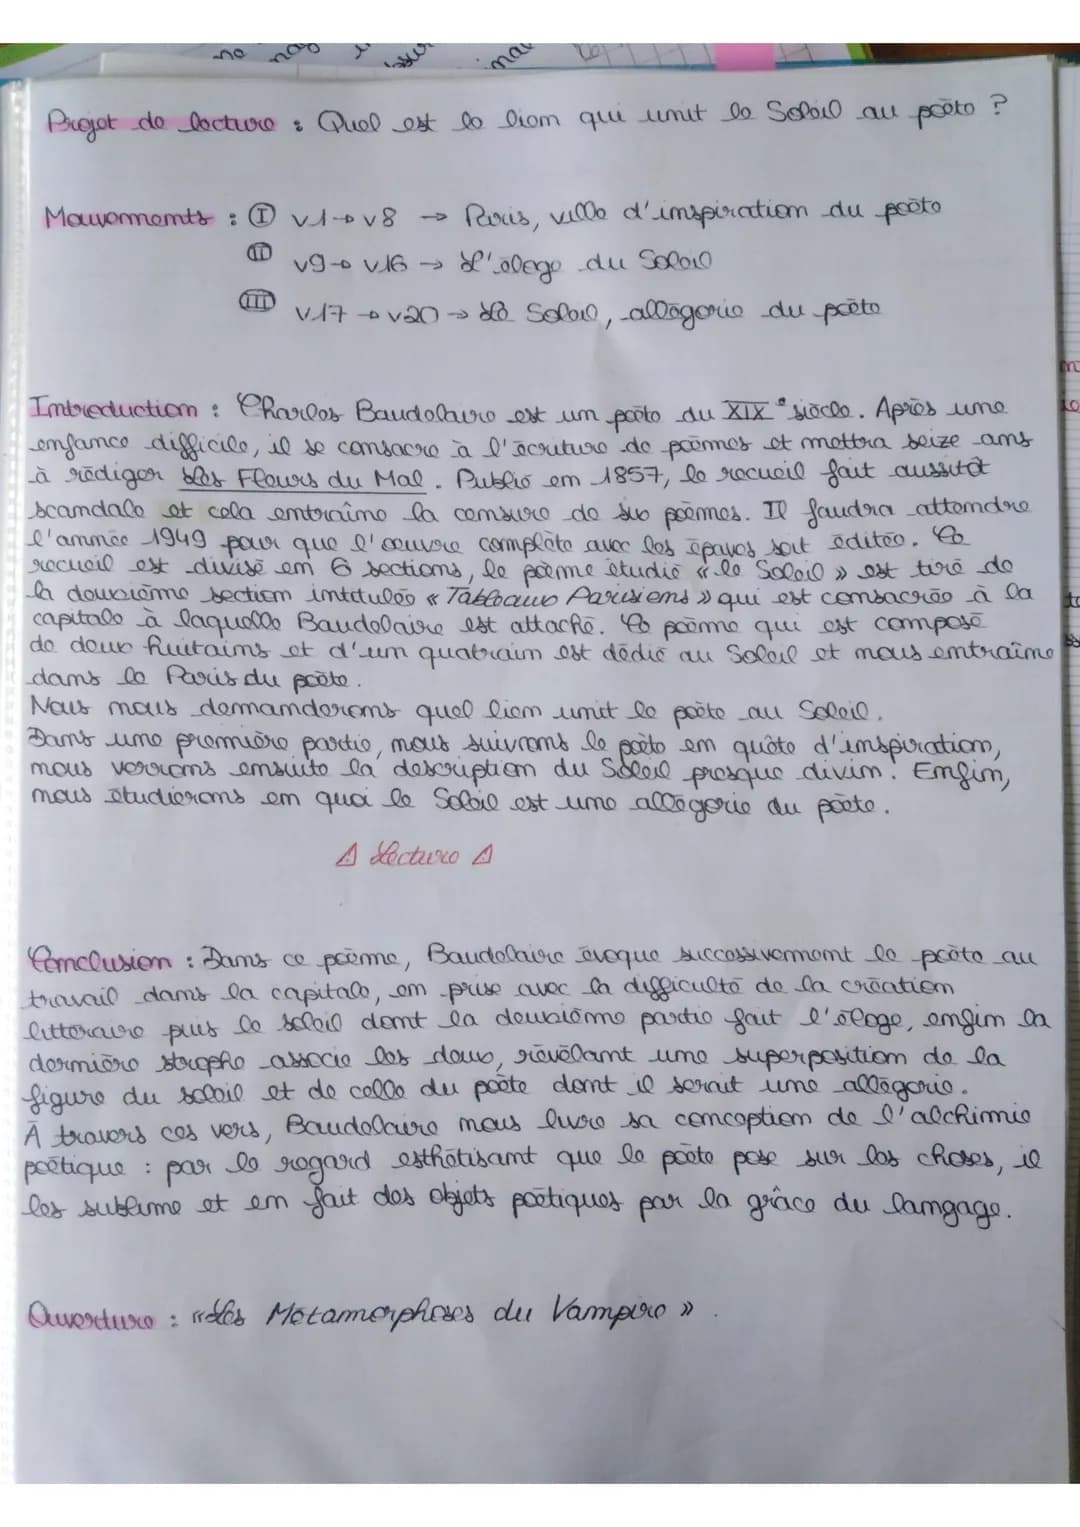 no nas
Projet de lecture : Quel est le lien qui unit le Soleil au poète ?
Mouvements : I v1→v8 → Paris, ville d'inspiration du poète
II v9→v16 → L'éloge du Soleil
III v17→v20→ Le Soleil, allégorie du poète
Introduction : Charles Baudelaire est un poète du XIX° siècle. Après une
enfance difficile, il se consacre à l'écriture de poèmes et mettra seize ans
à rédiger Les Fleurs du Mal. Publié en 1857, le recueil fait aussitôt
scandale et cela entraîne la censure de six poèmes. Il faudra attendre
l'année 1949 pour que l'œuvre complète avec les épaves soit éditée. Ce
recueil est divisé en 6 sections, le poème étudié « le Soleil » est tiré de
la deuxième section intitulée « Tableaux Parisiens » qui est consacrée à la
capitale à laquelle Baudelaire est attaché. Ce poème qui est composé
de deux huitains et d'un quatrain est dédié au Soleil et nous entraîne
dans le Paris du poète.
Nous nous demanderons quel lien unit le poète au Soleil.
Dans une première partie, nous suivrons le poète en quête d'inspiration,
nous verrons ensuite la description du Soleil presque divin. Enfin,
nous étudierons en quoi le Soleil est une allégorie du poète.
⚠ Lecture ⚠
Conclusion : Dans ce poème, Baudelaire évoque successivement le poète au
travail dans la capitale, en prise avec la difficulté de la création
littéraire puis le soleil dont la deuxième partie fait l'éloge, enfin la
dernière strophe associe les deux, révélant une superposition de la
figure du soleil et de celle du poète dont il serait une allégorie.
À travers ces vers, Baudelaire nous livre sa conception de l'alchimie
poétique : par le regard esthétisant que le poète pose sur les choses, il
les sublime et en fait des objets poétiques par la grâce du langage.
Ouverture : « Les Métamorphoses du Vampire ».